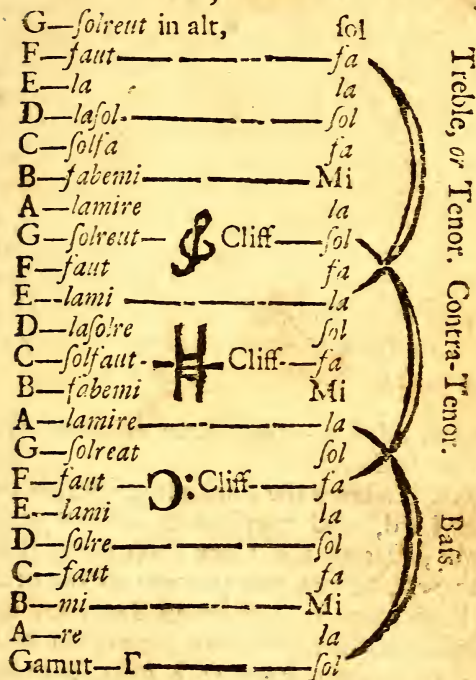 G—ſolreut in alt, ſol
F—faut ſa
E—la la
D—laſol ſol
C—ſolfa fa
B—fabemi Mi
A—lamire la
G—ſolreut Cliff ſol
F—faut fa
E—lami la
D—laſolre ſol
C—ſolfaut Cliff fa
B—fabemi Mi
A—lamire la
G—ſolreat ſol
F—faut Cliff fa
E—lami la
D—ſolre ſol
C—faut fa
B—mi Mi
A—re la
Gamut—Γ ſol
Treble, or Tenor. Contra-Tenor. Baſs.